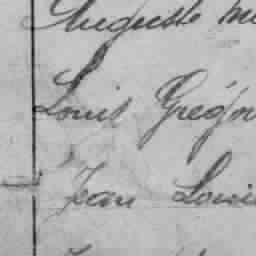 Auguste
Louis Grégo
Jean Louis